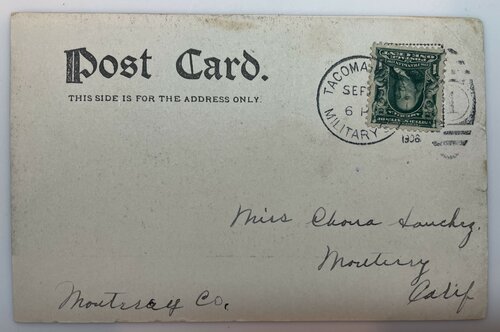 Post Card.
THIS SIDE IS FOR THE ADDRESS ONLY.
TACOMA
SEP
6 P
MILITARY
1908
Miss Chona Sanchez,
Monterey
Calif
Monterey Co.